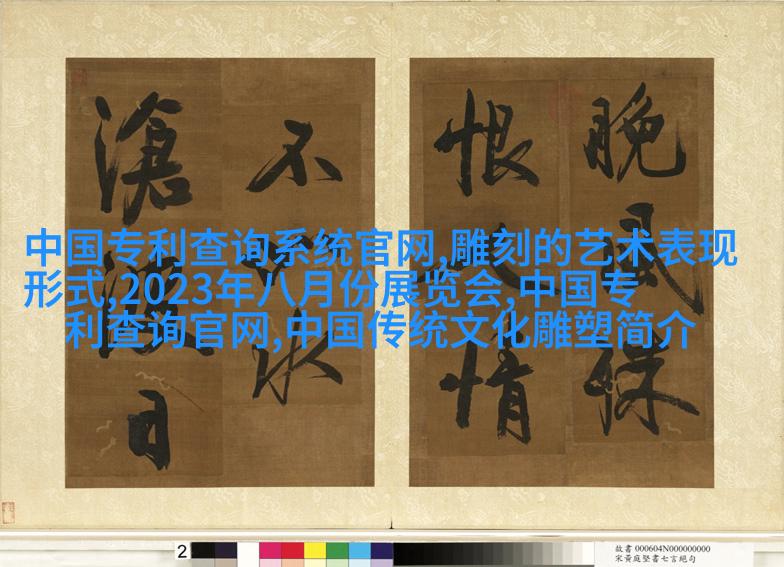 中国专利查询系统官网,雕刻的艺术表现
形式,2023年八月份展览会,中国专
利查询官网,中国传统文化雕塑简介
晚風殊
恨情
不水
滄波日
2
故書 000604N000000000
宋黃庭堅書七言絕句